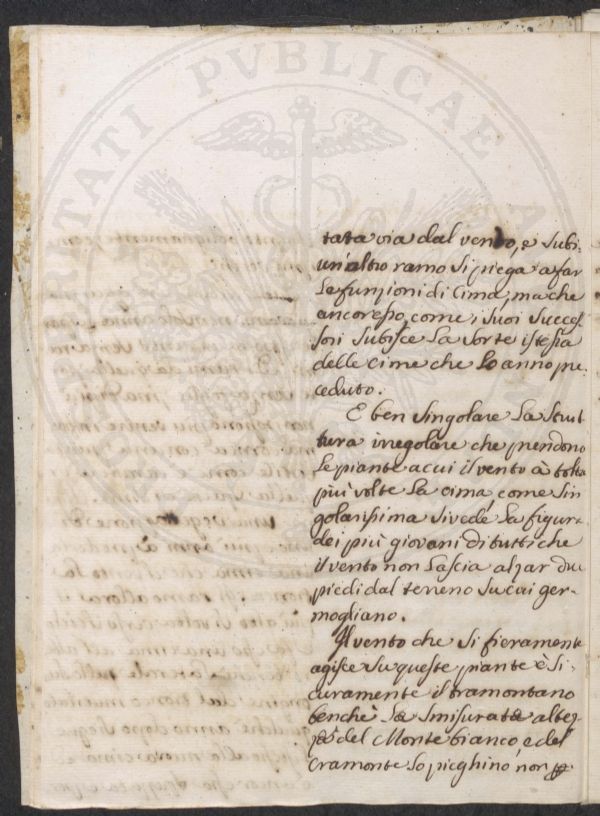 PVBLICAE
tata via dal vento, e subi-
un'altro ramo si piega a far
le funzioni di Cima, ma che
ancor esso, come i suoi succes
sori subisce la sorte istessa
delle cime che lo anno pre-
ceduto.
E ben singolare la strut
tura irregolare che prendono
le piante a cui il vento à tolta
più volte la cima, come sin
golarissima si vede la figura
dei più giovani di tutti che
il vento non lascia alzar due
piedi dal terreno su cui ger-
mogliano.
Il vento che si fieramente
agisce su queste piante è si-
curamente il tramontano
benchè la smisurata altez-
za del Monte bianco, e del
Cramonte lo pieghino non